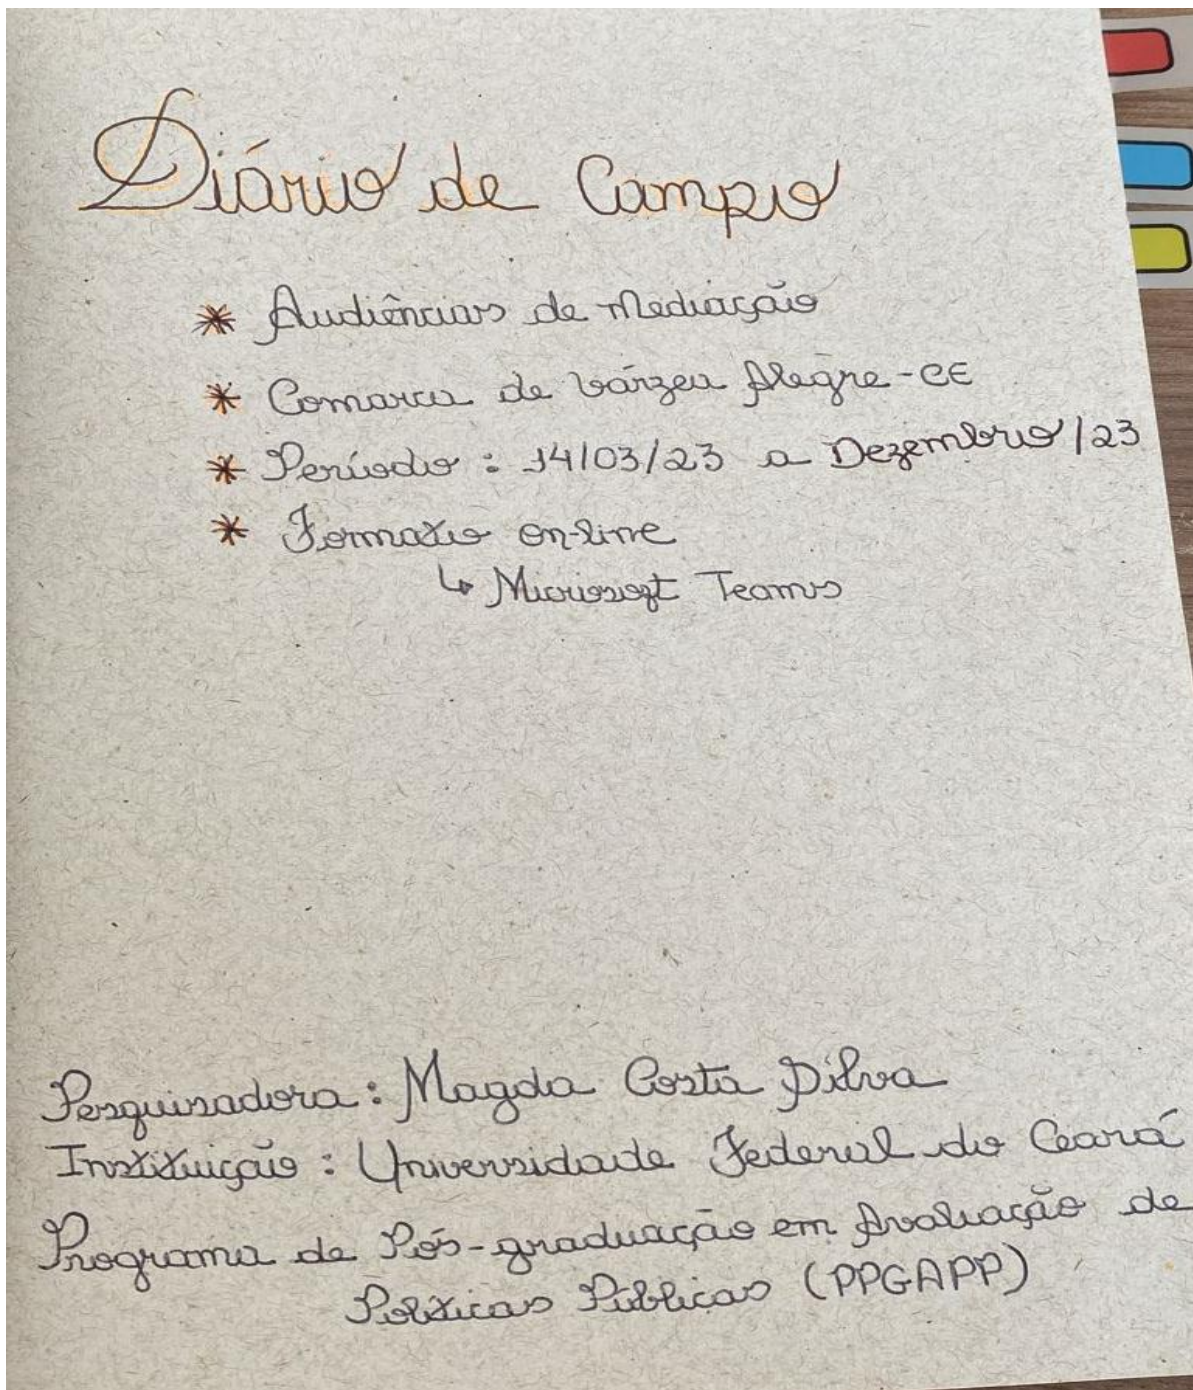 Diário de Campo
* Audiências de Mediação
* Comarca de Várzea Alegre-CE
* Período: 14/03/23 a Dezembro/23
* Formato on-line
↳ Microsoft Teams
Pesquisadora: Magda Costa Silva
Instituição: Universidade Federal do Ceará
Programa de Pós-graduação em Avaliação de
Políticas Públicas (PPGAPP)